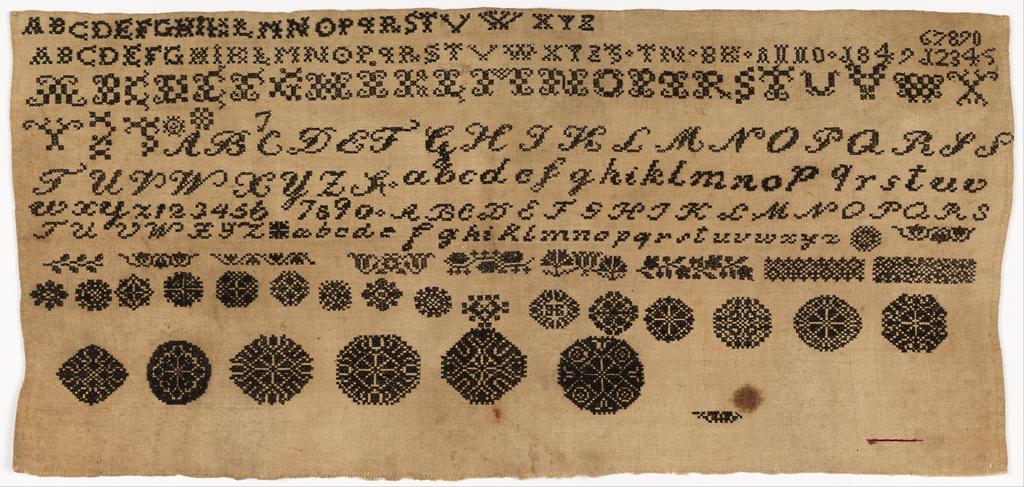 ABCDEFGHIKLMNOPQRSTVWXYZ
67890
ABCDEFGHIKLMNOPQRSTVWXYZ TN 1849 12345
ABCDEFGHIKLMNOPQRSTUVWX
YZ ABCDEFGHIKLMNOPQRSS
TUVWXYZ abcdefghiklmnopqrstuv
wxyz123456 7890 ABCDEFGHIKLMNOPQRS
TUVWXYZ abcdefghiklmnopqrstuvwxyz